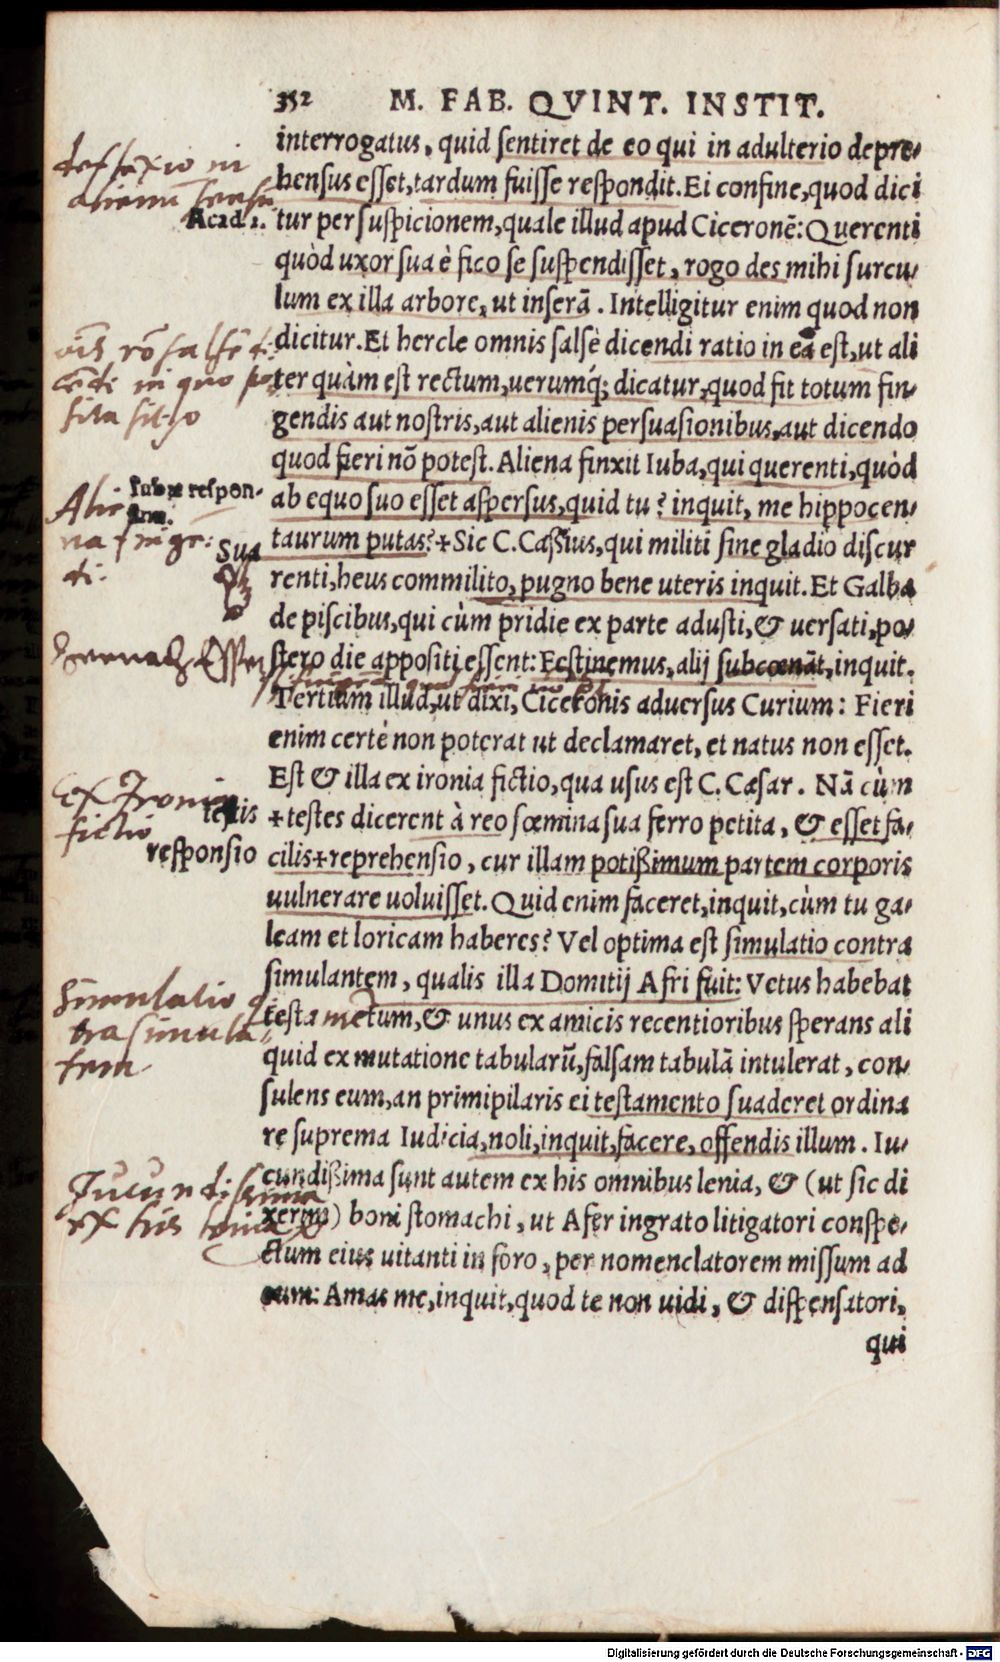 352 M. FAB. QVINT. INSTIT.
interrogatus, quid sentiret de eo qui in adulterio depre-
hensus esset, tardum fuisse respondit. Ei confine, quod dici
Acad 1. tur per suspicionem, quale illud apud Ciceronē: Querenti
quòd uxor sua è fico se suspendisset, rogo des mihi surcu-
lum ex illa arbore, ut inserā. Intelligitur enim quod non
dicitur. Et hercle omnis salsè dicendi ratio in ea est, ut ali
ter quàm est rectum, uerumq́; dicatur, quod fit totum fin-
gendis aut nostris, aut alienis persuasionibus, aut dicendo
quod fieri nō potest. Aliena finxit Iuba, qui querenti, quòd
ab equo suo esset aspersus, quid tu? inquit, me hippocen-
taurum putas?+Sic C. Cassius, qui militi sine gladio discur
renti, heus commilito, pugno bene uteris inquit. Et Galba
de piscibus, qui cùm pridie ex parte adusti, & uersati, po-
stero die appositi essent: Festinemus, alij subcœnāt, inquit.
Tertium illud, ut dixi, Ciceronis aduersus Curium: Fieri
enim certè non poterat ut declamaret, et natus non esset.
Est & illa ex ironia fictio, qua usus est C. Cæsar. Nā cùm
testis +testes dicerent à reo fœmina sua ferro petita, & esset fa-
responsio cilis+reprehensio, cur illam potißimum partem corporis
uulnerare uoluisset. Quid enim faceret, inquit, cùm tu ga-
leam et loricam haberes? Vel optima est simulatio contra
simulantem, qualis illa Domitij Afri fuit: Vetus habebat
testamentum, & unus ex amicis recentioribus sperans ali
quid ex mutatione tabularū, falsam tabulā intulerat, con-
sulens eum, an primipilaris ei testamento suaderet ordina
re suprema Iudicia, noli, inquit, facere, offendis illum. Iu-
cundißima sunt autem ex his omnibus lenia, & (ut sic di
xerim) boni stomachi, ut Afer ingrato litigatori conspe-
ctum eius uitanti in foro, per nomenclatorem missum ad
eum: Amas me, inquit, quod te non uidi, & dispensatori,
qui
Ex Ironia
fictio
Simulatio
tra simula-
tem
Jucundissima
ex his
Digitalisierung gefördert durch die Deutsche Forschungsgemeinschaft - DFG